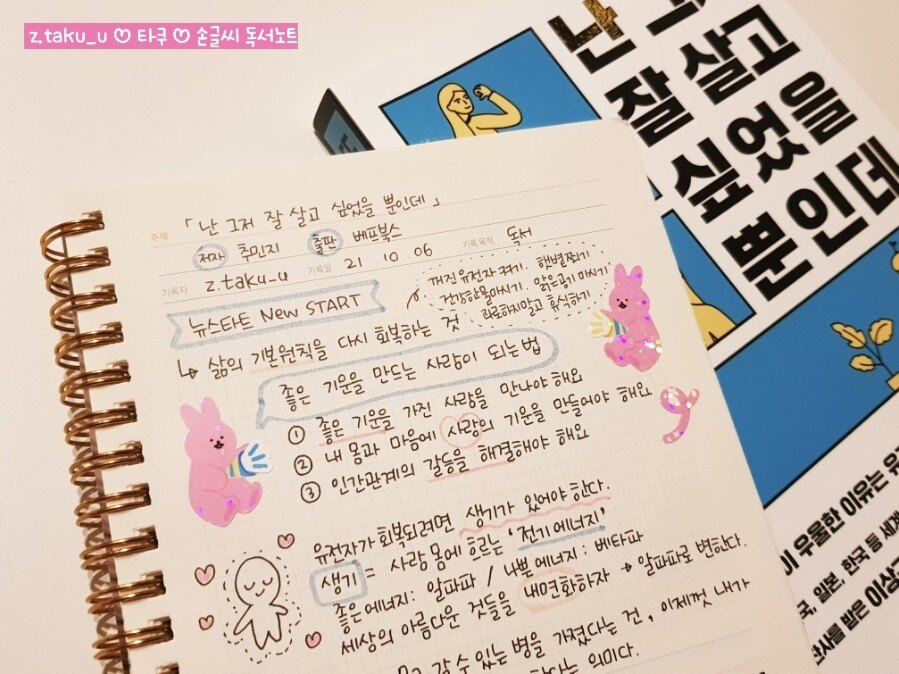 z.taku_u ♡ 타쿠 ♡ 손글씨 독서노트
난 그
잘 살고
싶었을
뿐인데
주제 「난 그저 잘 살고 싶었을 뿐인데」
저자 추민지 출판 베프북스
기록자 z.taku_u 기록일 21 10 06 기록목적 독서
뉴스타트 New START
꺼진유전자 켜기. 햇볕쬐기
건강한물마시기. 맑은공기 마시기
과로하지말고 휴식하기
↳ 삶의 기본원칙을 다시 회복하는 것
좋은 기운을 만드는 사람이 되는 법
① 좋은 기운을 가진 사람을 만나야 해요
② 내 몸과 마음에 사랑의 기운을 만들어야 해요
③ 인간관계의 갈등을 해결해야 해요
유전자가 회복되려면 생기가 있어야 한다.
생기 = 사람 몸에 흐르는 '전기에너지'
좋은에너지: 알파파 / 나쁜에너지: 베타파
세상의 아름다운 것들을 내면화하자 → 알파파로 변한다.
갈 수 있는 병을 가졌다는 건, 이제껏 내가
다는 의미다.
이 우울한 이유는 유
국, 일본, 한국 등 세계
찬사를 받은 이상구